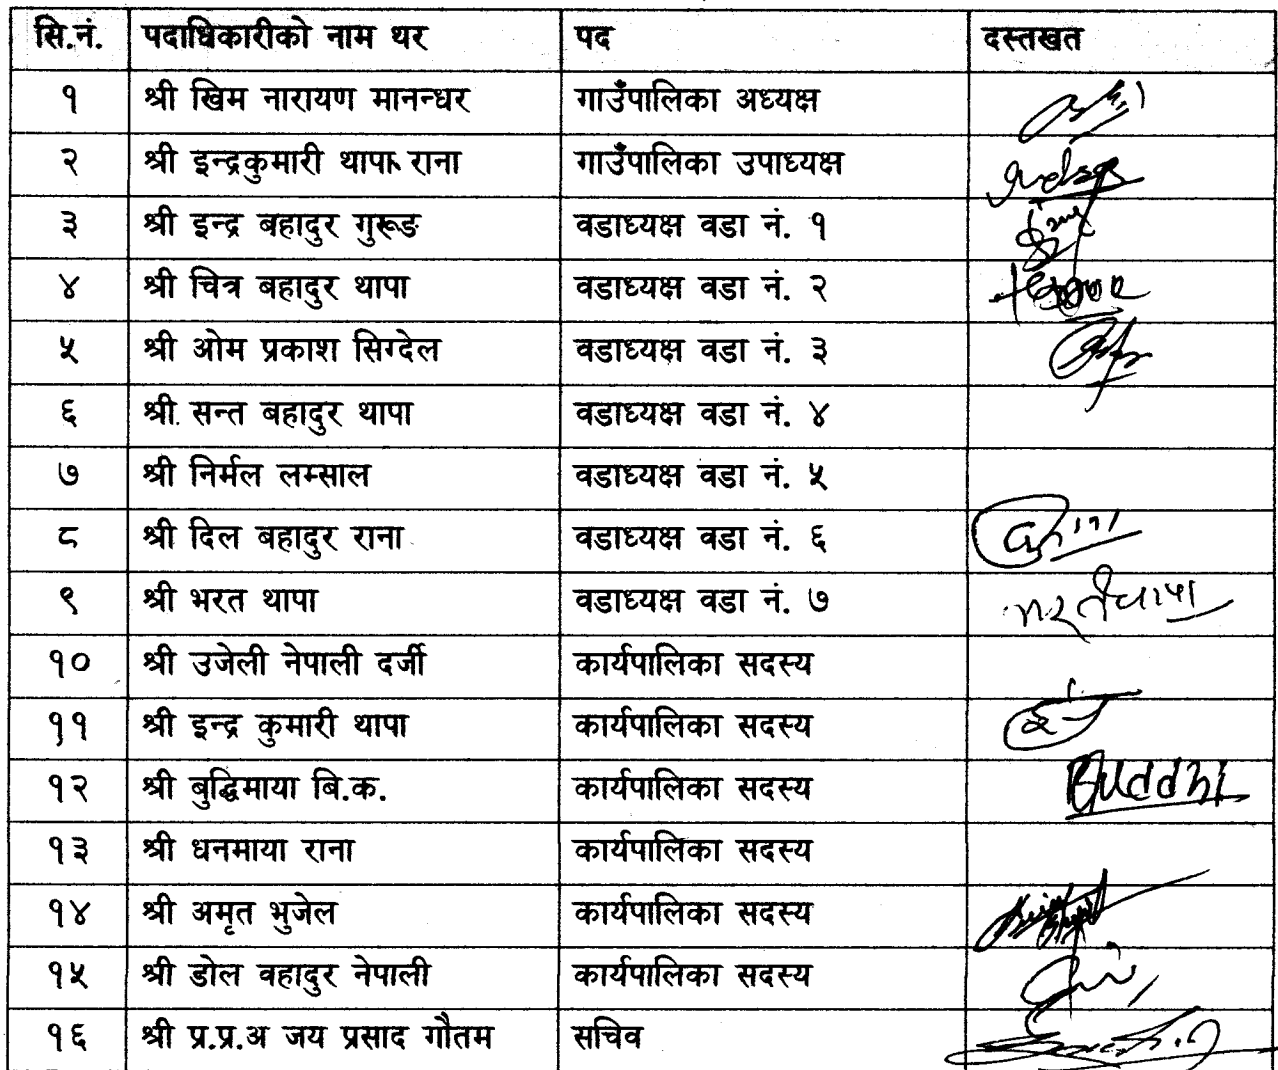 सि.नं. पदाधिकारीको नाम थर पद दस्तखत
१ श्री खिम नारायण मानन्धर गाउँपालिका अध्यक्ष
२ श्री इन्द्रकुमारी थापा राना गाउँपालिका उपाध्यक्ष
३ श्री इन्द्र बहादुर गुरूङ वडाध्यक्ष वडा नं. १
४ श्री चित्र बहादुर थापा वडाध्यक्ष वडा नं. २
५ श्री ओम प्रकाश सिग्देल वडाध्यक्ष वडा नं. ३
६ श्री सन्त बहादुर थापा वडाध्यक्ष वडा नं. ४
७ श्री निर्मल लम्साल वडाध्यक्ष वडा नं. ५
८ श्री दिल बहादुर राना वडाध्यक्ष वडा नं. ६
९ श्री भरत थापा वडाध्यक्ष वडा नं. ७
१० श्री उजेली नेपाली दर्जी कार्यपालिका सदस्य
११ श्री इन्द्र कुमारी थापा कार्यपालिका सदस्य
१२ श्री बुद्धिमाया बि.क. कार्यपालिका सदस्य Buddhi
१३ श्री धनमाया राना कार्यपालिका सदस्य
१४ श्री अमृत भुजेल कार्यपालिका सदस्य
१५ श्री डोल वहादुर नेपाली कार्यपालिका सदस्य
१६ श्री प्र.प्र.अ जय प्रसाद गौतम सचिव